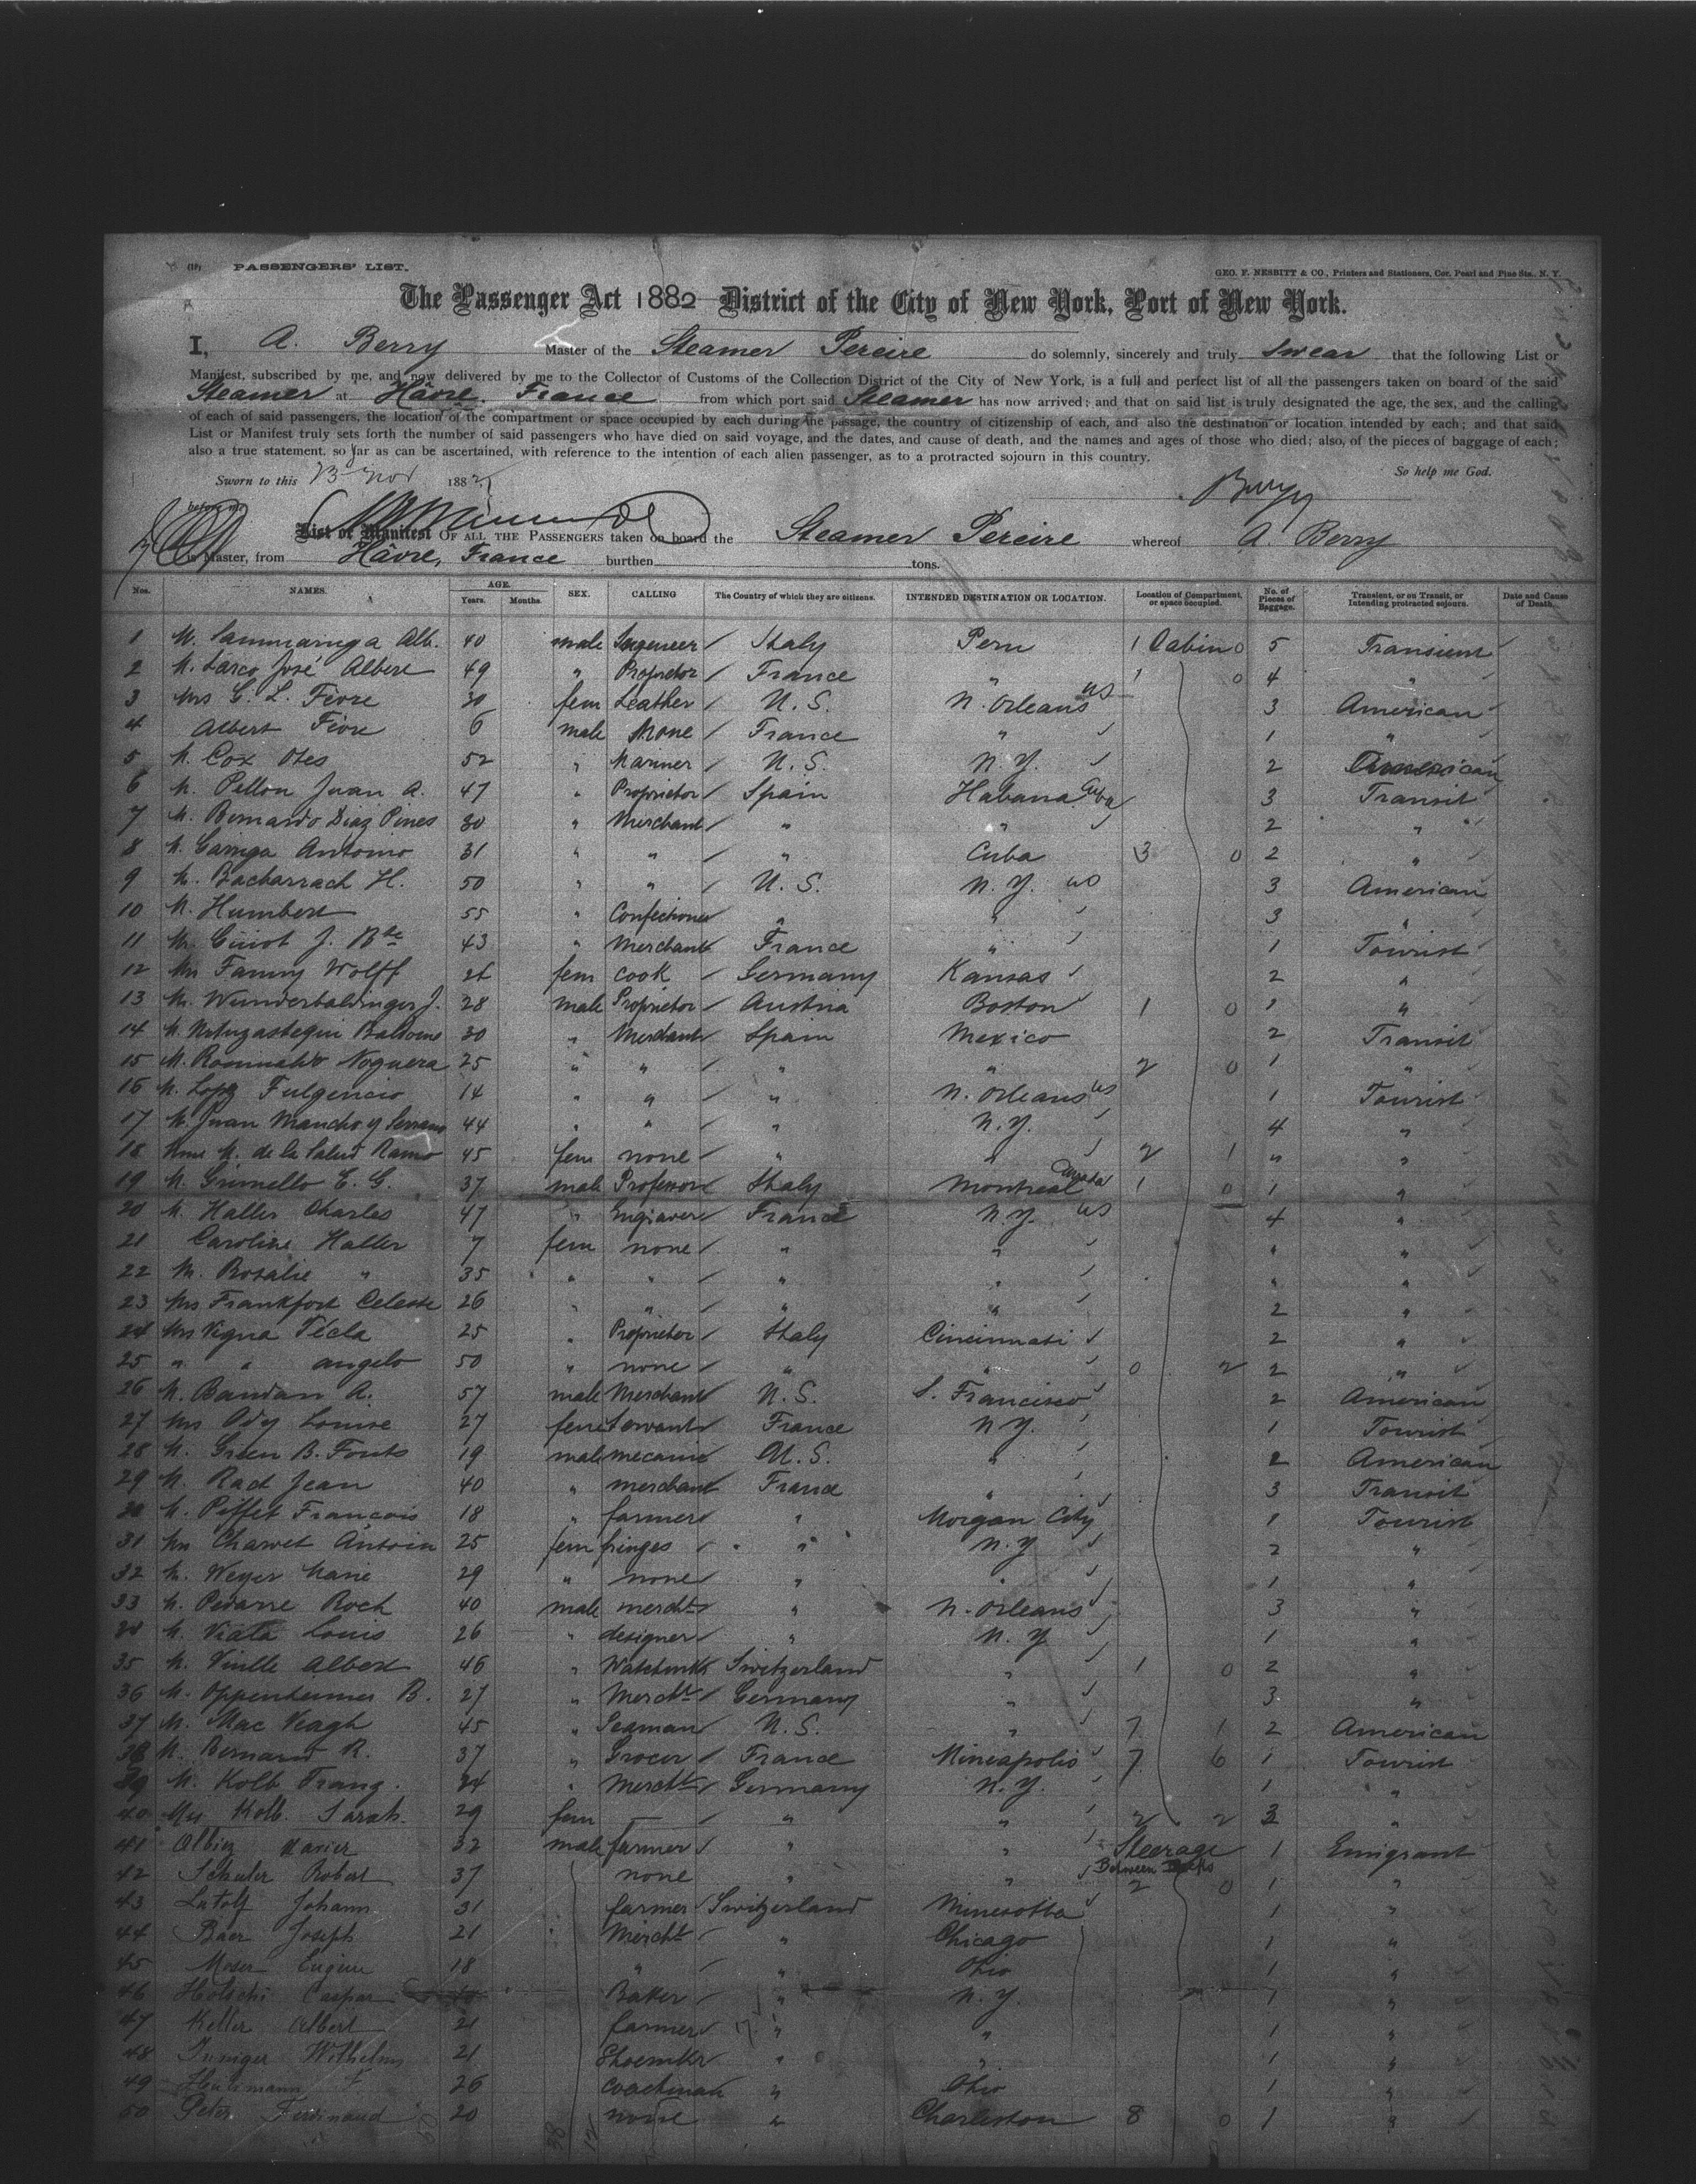 PASSENGERS' LIST.
GEO. F. NESBITT & CO., Printers and Stationers, Cor. Pearl and Pine Sts., N. Y.
The Passenger Act 1882 District of the City of New York, Port of New York.
I, A. Berry Master of the Steamer Pereire do solemnly, sincerely and truly swear that the following List or
Manifest, subscribed by me, and now delivered by me to the Collector of Customs of the Collection District of the City of New York, is a full and perfect list of all the passengers taken on board of the said
Steamer at Hâvre, France from which port said Steamer has now arrived; and that on said list is truly designated the age, the sex, and the calling
of each of said passengers, the location of the compartment or space occupied by each during the passage, the country of citizenship of each, and also the destination or location intended by each; and that said
List or Manifest truly sets forth the number of said passengers who have died on said voyage, and the dates, and cause of death, and the names and ages of those who died; also, of the pieces of baggage of each;
also a true statement, so far as can be ascertained, with reference to the intention of each alien passenger, as to a protracted sojourn in this country.
So help me God.
Sworn to this 13 Nov 1882
Berry
before me
List or Manifest OF ALL THE PASSENGERS taken on board the Steamer Pereire whereof A. Berry
is Master, from Hâvre, France burthen tons.
Nos. NAMES. AGE. Years. Months. SEX. CALLING The Country of which they are citizens. INTENDED DESTINATION OR LOCATION. Location of Compartment, or space occupied. No. of Pieces of Baggage. Transient, or on Transit, or Intending protracted sojourn. Date and Cause of Death.
1 M. Alb. 40 male Ingeneer Italy Peru 1 Cabin 0 5 Transient
2 M. Larco José Albert 49 " Proprietor France " 1 0 4 "
3 Mrs C. L. Fiore 30 fem Leather U. S. N. Orleans US 3 American
4 Albert Fiore 6 male None France " 1 "
5 M. Cox Otes 52 " Mariner U. S. N. Y. 2 American
6 M. Pellon Juan A. 47 " Proprietor Spain Habana Cuba 3 Transit
7 M. Bernardo Diaz Pines 30 " Merchant " " 2 "
8 M. Garriga Antonio 31 " " " Cuba 3 0 2 "
9 M. Bacharrach H. 50 " " U. S. N. Y. US 3 American
10 M. Humbert 55 " Confectioner " " 3 "
11 M. Guiot J. Bte 43 " Merchant France " 1 Tourist
12 Mrs Fanny Wolff 26 fem cook Germany Kansas 2 "
13 M. Wunderbaldinger J. 28 male Proprietor Austria Boston 1 0 1 "
14 M. 30 " Merchant Spain Mexico 2 Transit
15 M. Romualdo Noguera 25 " " " " 2 0 1 "
16 M. Lopez Fulgencio 14 " " " N. Orleans US 1 Tourist
17 M. Juan Mancho y Serrano 44 " " " N. Y. 4 "
18 Mme M. de la Salud Ramo 45 fem none " " 2 1 " "
19 M. Grimello E. G. 37 male Professor Italy Montreal Canada 1 0 1 "
20 M. Haller Charles 47 " Engraver France N. Y. US 4 "
21 Caroline Haller 7 fem none " " " "
22 M. Rosalie " 35 " " " " " "
23 Mrs Frankfort Celeste 26 " " " " 2 "
24 Mrs Vigna Técla 25 " Proprietor Italy Cincinnati 2 "
25 " " angelo 50 " none " " 0 2 2 "
26 M. Baudan A. 57 male Merchant U. S. S. Francisco 2 American
27 Mrs Ody Louise 27 feme Servant France N. Y. 1 Tourist
28 M. Green B. Fouts 19 male mecanic U. S. " 2 American
29 M. Rad Jean 40 " merchant France " 3 Transit
30 M. Piffet Francois 18 " farmer " Morgan City 1 Tourist
31 Mrs Charvet Antoin 25 fem fringes " N. Y 2 "
32 M. Weyer Marie 29 " none " " 1 "
33 M. Roch 40 male mercht " N. Orleans 3 "
34 M. Viata Louis 26 " designer " N. Y 1 "
35 M. Vuille Albert 46 " Watchmk Switzerland " 1 0 2 "
36 M. Oppenheimer B. 27 " Mercht Germany " 3 "
37 M. Mac Veagh 45 " Seaman U. S. " 7 1 2 American
38 M. Bernard R. 37 " Grocer France Mineapolis 7 6 1 Tourist
39 M. Kolb Franz. 34 " Mercht Germany N. Y. 1 "
40 Mrs Kolb. Sarah. 29 fem — " " 2 2 3 "
41 Albiez Xavier 32 male farmer " " Steerage 1 Emigrant
Between Decks
42 Schuler Robert 37 none " " 2 0 1 "
43 Lutolf Johann 31 farmer Switzerland Minesotta 1 "
44 Baer Joseph 21 Mercht " Chicago 1 "
45 Moser Eugene 18 " " Ohio 1 "
46 Caspar Baker " N. Y. 1 "
47 Keller Albert 21 farmer " " 1 "
48 Inniger Wilhelm 21 Shoemkr " " 1 "
49 F. 26 coachman " Ohio 1 "
50 Peter Ferdinand 20 none " Charleston 8 0 1 "
38 12